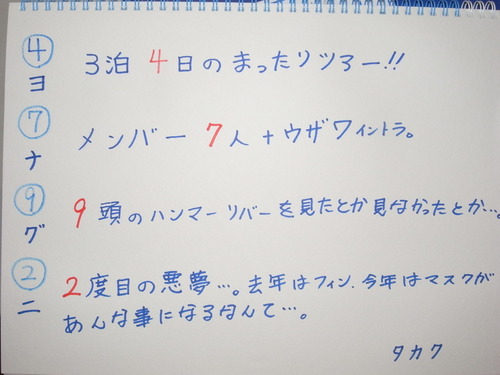 ④ヨ 3泊4日のまったりツアー!!
⑦ナ メンバー7人+ウザワイントラ。
⑨グ 9頭のハンマーリバーを見たとか見なかったとか…。
②ニ 2度目の悪夢…。去年はフィン、今年はマスクが
あんな事になるなんて…。
タカク